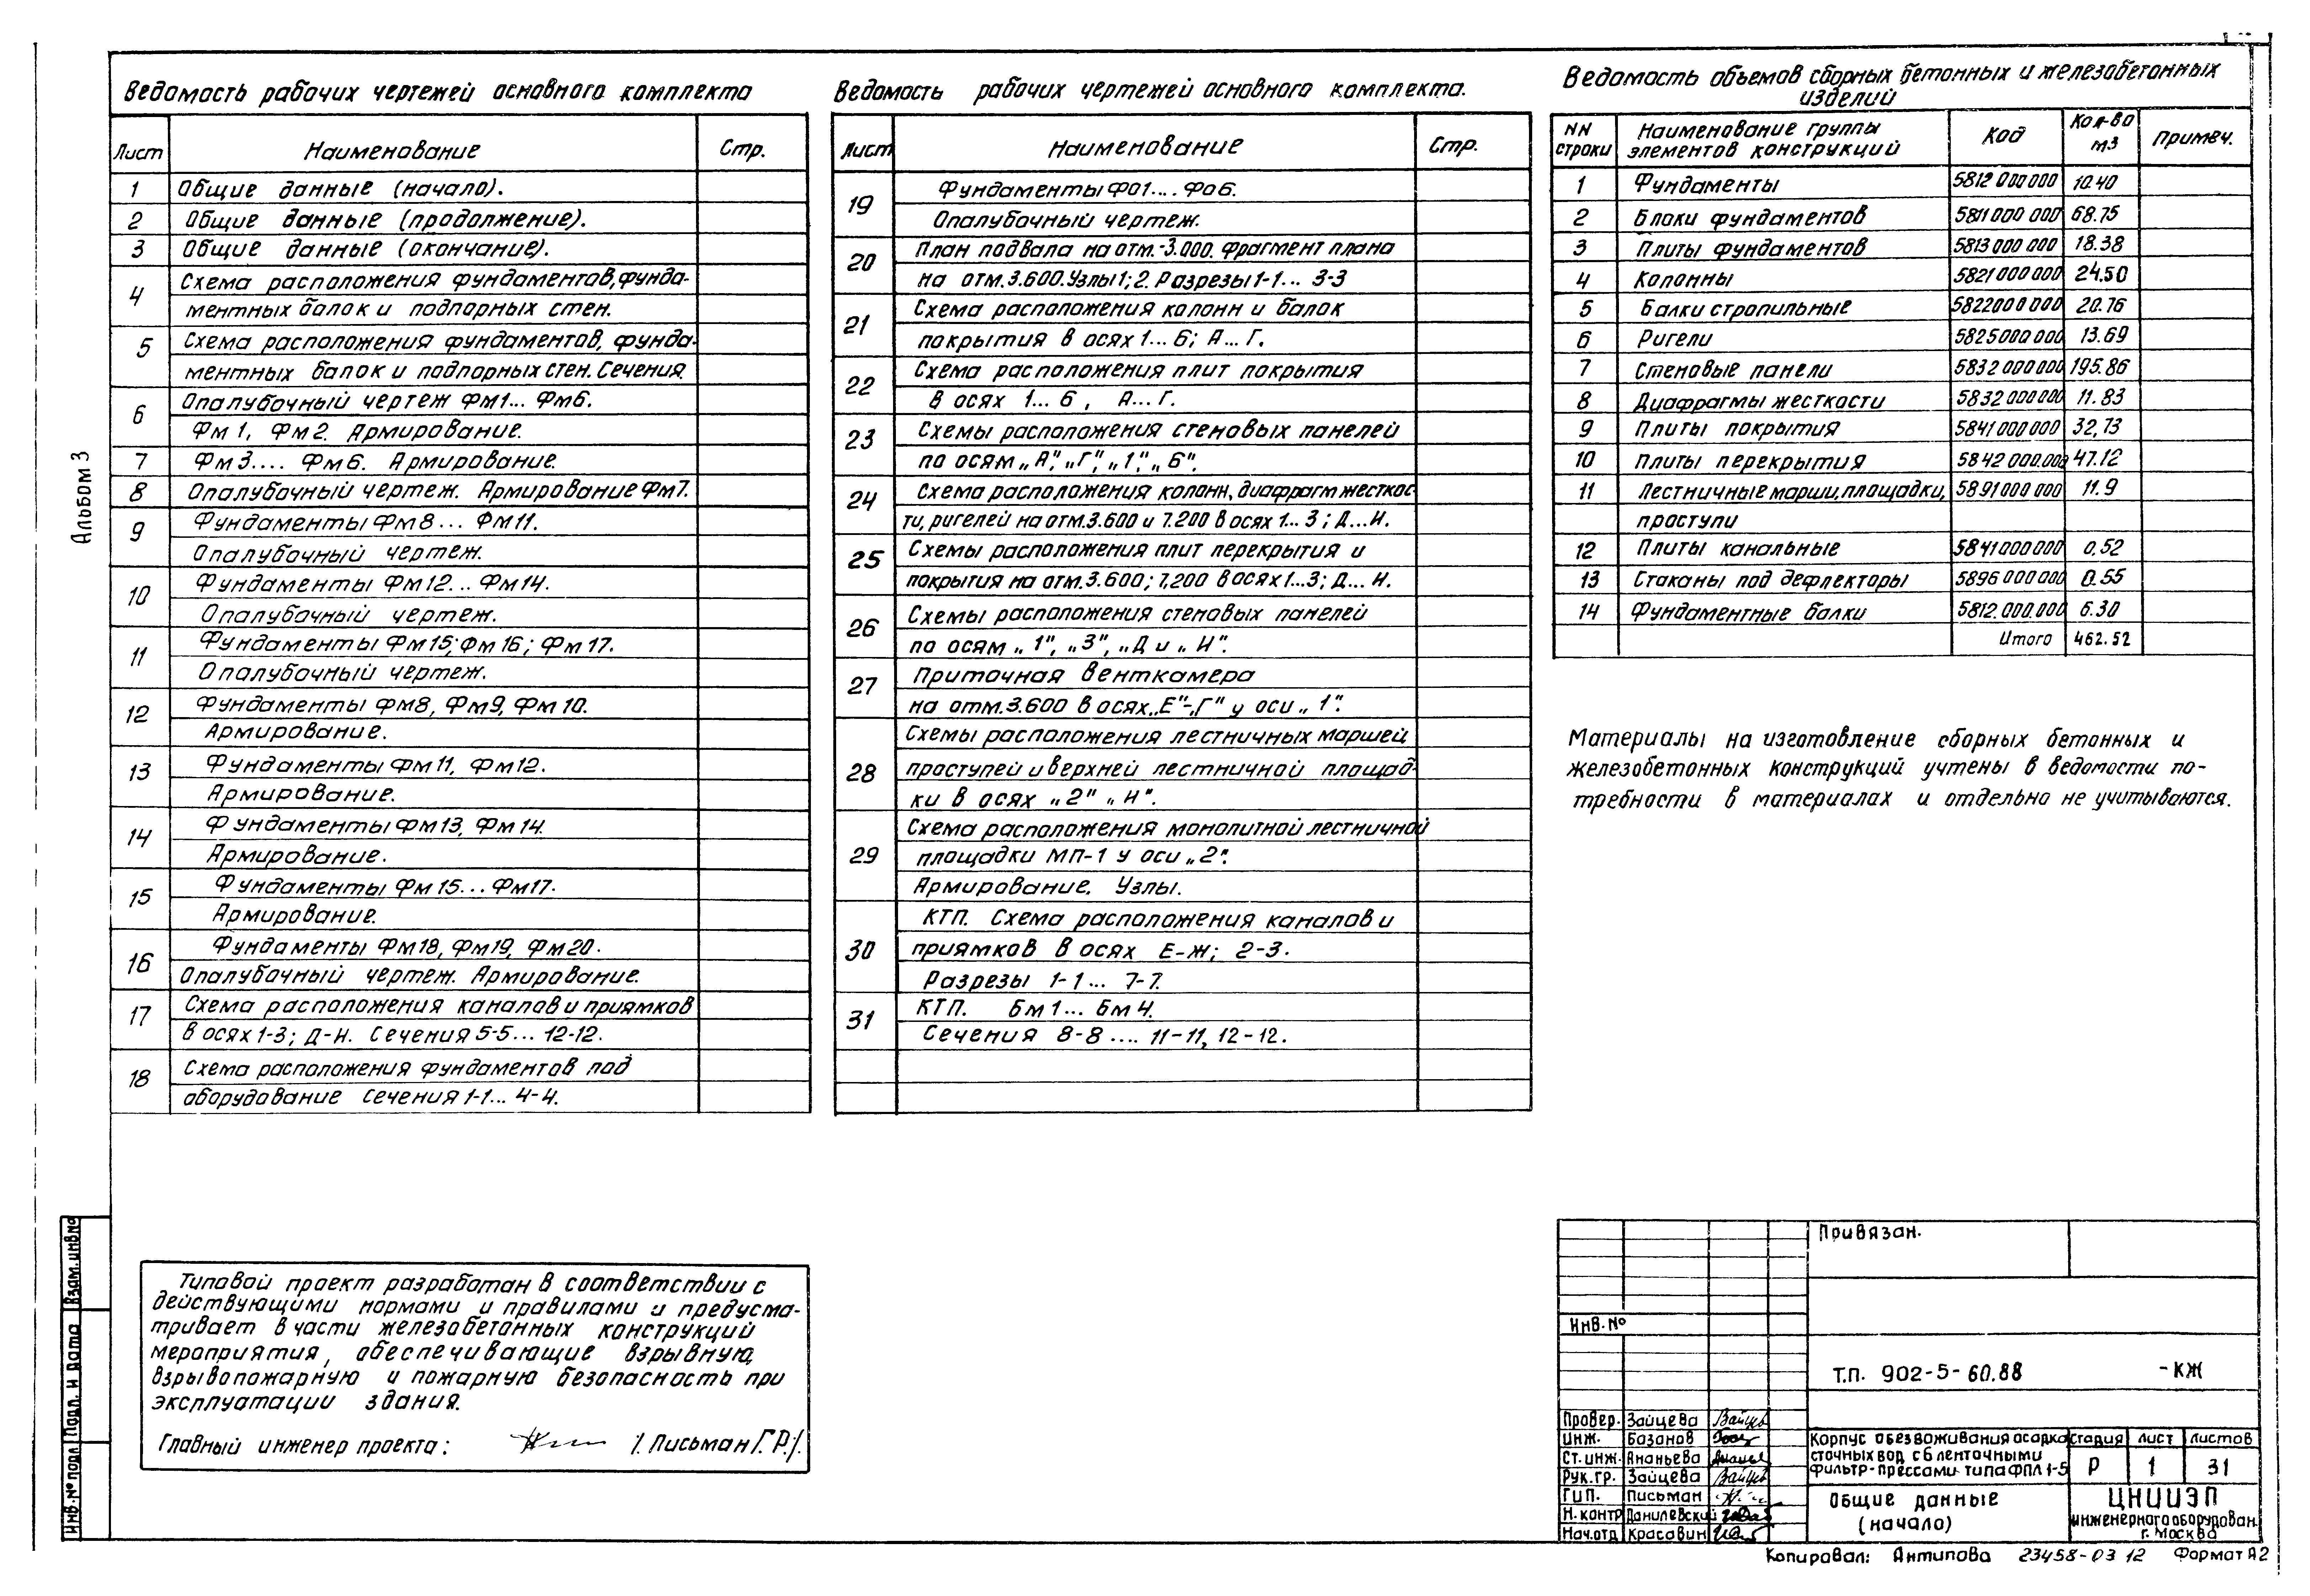 Альбом 3
Ведомость рабочих чертежей основного комплекта
Лист Наименование Стр.
1 Общие данные (начало).
2 Общие данные (продолжение).
3 Общие данные (окончание).
4 Схема расположения фундаментов, фунда-
ментных балок и подпорных стен.
5 Схема расположения фундаментов, фунда-
ментных балок и подпорных стен. Сечения.
6 Опалубочный чертеж Фм1... Фм6.
Фм 1, Фм 2. Армирование.
7 Фм 3.... Фм 6. Армирование.
8 Опалубочный чертеж. Армирование Фм7.
9 Фундаменты Фм 8 ... Фм 11.
Опалубочный чертеж.
10 Фундаменты Фм 12... Фм 14.
Опалубочный чертеж.
11 Фундаменты Фм 15; Фм 16; Фм 17.
Опалубочный чертеж.
12 Фундаменты Фм8, Фм9, Фм 10.
Армирование.
13 Фундаменты Фм 11, Фм 12.
Армирование.
14 Фундаменты Фм 13, Фм 14.
Армирование.
15 Фундаменты Фм 15... Фм17.
Армирование.
16 Фундаменты Фм18, Фм19, Фм20.
Опалубочный чертеж. Армирование.
17 Схема расположения каналов и приямков
в осях 1-3; Д-И. Сечения 5-5... 12-12.
18 Схема расположения фундаментов под
оборудование Сечения 1-1... 4-4.
Ведомость рабочих чертежей основного комплекта.
Лист Наименование Стр.
19 Фундаменты Фо1.... Фо6.
Опалубочный чертеж.
20 План подвала на отм.-3.000. Фрагмент плана
на отм. 3.600. Узлы 1; 2. Разрезы 1-1... 3-3
21 Схема расположения колонн и балок
покрытия в осях 1... 6; А... Г.
22 Схема расположения плит покрытия
в осях 1... 6, А... Г.
23 Схемы расположения стеновых панелей
по осям „А", „Г", „1", „6".
24 Схема расположения колонн, диафрагм жесткос-
ти, ригелей на отм. 3.600 и 7.200 в осях 1... 3; Д...И.
25 Схемы расположения плит перекрытия и
покрытия на отм. 3.600; 7.200 в осях 1...3; Д... И.
26 Схемы расположения стеновых панелей
по осям „1", „3", „Д и „И".
27 Приточная венткамера
на отм. 3.600 в осях „Е"-„Г" у оси „1".
28 Схемы расположения лестничных маршей
проступей и верхней лестничной площад-
ки в осях „2" „И".
29 Схема расположения монолитной лестничной
площадки МП-1 у оси „2".
Армирование. Узлы.
30 КТП. Схема расположения каналов и
приямков в осях Е-Ж; 2-3.
Разрезы 1-1... 7-7.
31 КТП. Бм 1... Бм 4.
Сечения 8-8 .... 11-11, 12-12.
Ведомость объемов сборных бетонных и железобетонных
изделий
NN строки Наименование группы элементов конструкций Код Кол-во м3 Примеч.
1 Фундаменты 5812 000 000 10.40
2 Блоки фундаментов 5811 000 000 68.75
3 Плиты фундаментов 5813 000 000 18.38
4 Колонны 5821 000 000 24.50
5 Балки стропильные 5822000 000 20.76
6 Ригели 5825 000 000 13.69
7 Стеновые панели 5832 000 000 195.86
8 Диафрагмы жесткости 5832 000 000 11.83
9 Плиты покрытия 5841 000 000 32,73
10 Плиты перекрытия 5842 000.000 47.12
11 Лестничные марши, площадки, 5891 000 000 11.9
проступи
12 Плиты канальные 5841 000 000 0.52
13 Стаканы под дефлекторы 5896 000 000 0.55
14 Фундаментные балки 5812.000.000 6.30
Итого 462.52
Материалы на изготовление сборных бетонных и
железобетонных конструкций учтены в ведомости по-
требности в материалах и отдельно не учитываются.
Типовой проект разработан в соответствии с
действующими нормами и правилами и предусма-
тривает в части железобетонных конструкций
мероприятия, обеспечивающие взрывную,
взрывопожарную и пожарную безопасность при
эксплуатации здания.
Главный инженер проекта: /. Письман Г.Р./.
Взам. инв.№
Подп. и дата
Инв.№ подл
Привязан.
Инв. №
Т.П. 902-5-60.88 -КЖ
Провер. Зайцева
Инж. Базанов
Ст. инж. Ананьева
Рук. гр. Зайцева
ГИП. Письман
Н. контр Данилевский
Нач. отд Красавин
Корпус обезвоживания осадка
сточных вод с 6 ленточными
фильтр-прессами типа ФПЛ 1-5
стадия лист листов
Р 1 31
Общие данные
(начало)
ЦНИИЭП
инженерного оборудован.
г. Москва
Копировал: Антипова 23458-03 12 Формат А2